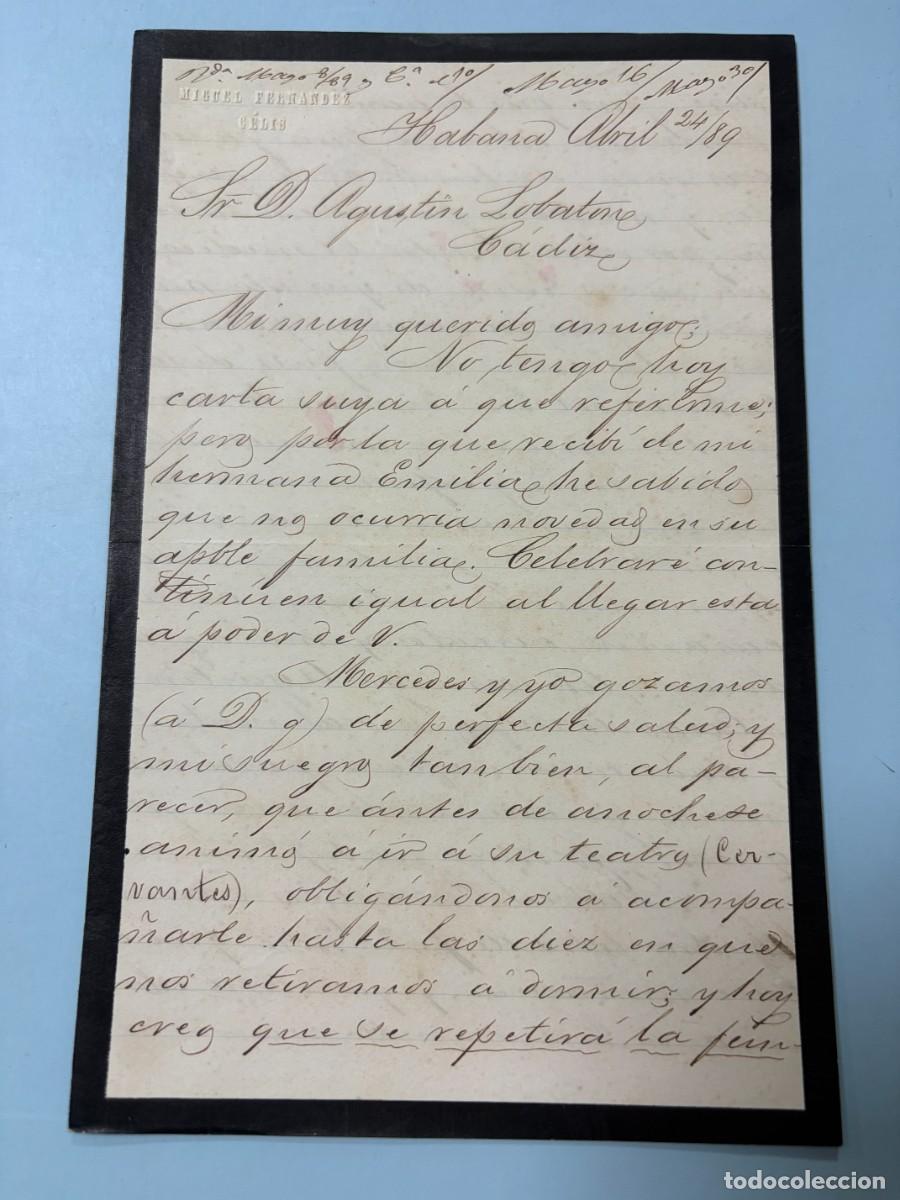 Rda Mayo 8/89 y Ca el 10/ Mayo 16/ Mayo 30/
MIGUEL FERNANDEZ
CÉLIS
Habana Abril 24/89
Sr D. Agustin Lobaton
Cádiz
Mi muy querido amigo:
No tengo hoy
carta suya á que referirme;
pero por la que recibí de mi
hermana Emilia, he sabido
que no ocurria novedad en su
apble familia. Celebraré con-
tinúen igual al llegar esta
á poder de V.
Mercedes y yo gozamos
(á D. g) de perfecta salud; y
mi suegro tambien, al pa-
recer, que ántes de anoche se
animó á ir á su teatro (Cer-
vantes), obligándonos á acompa-
ñarle hasta las diez en que
nos retiramos á dormir; y hoy
creo que se repetirá la fun-
todocoleccion